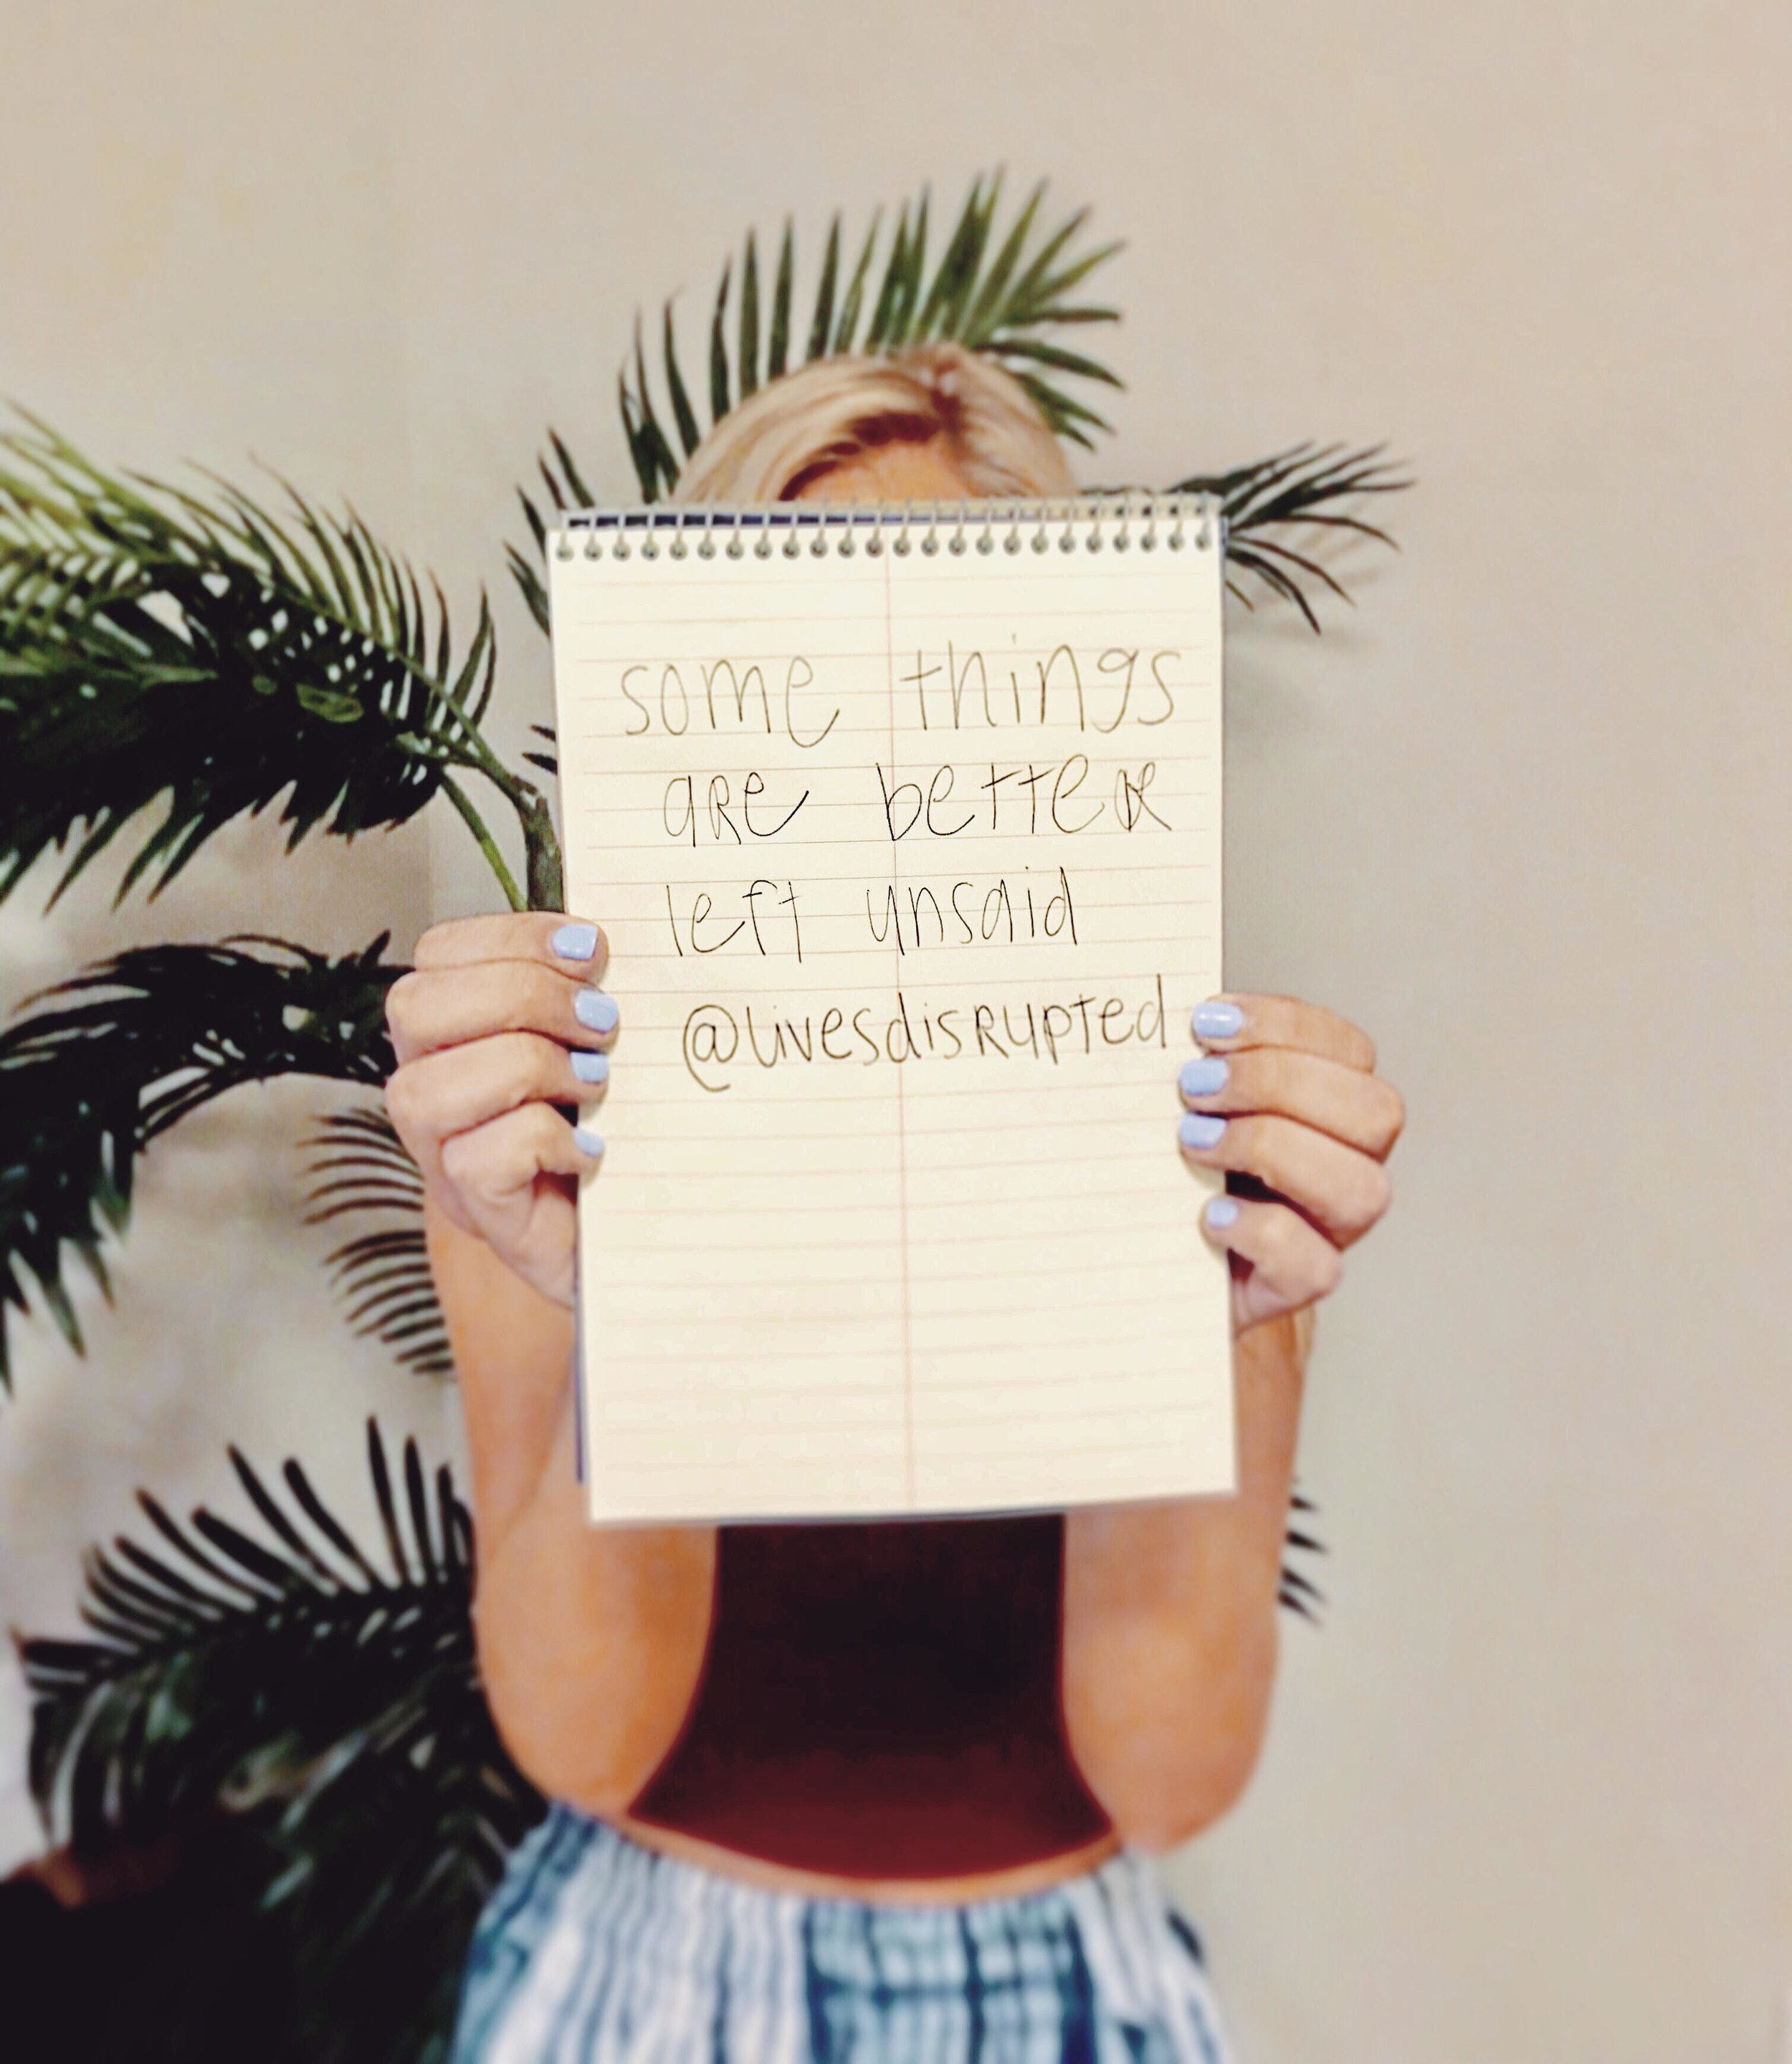 some things
are better
left unsaid
@livesdisrupted